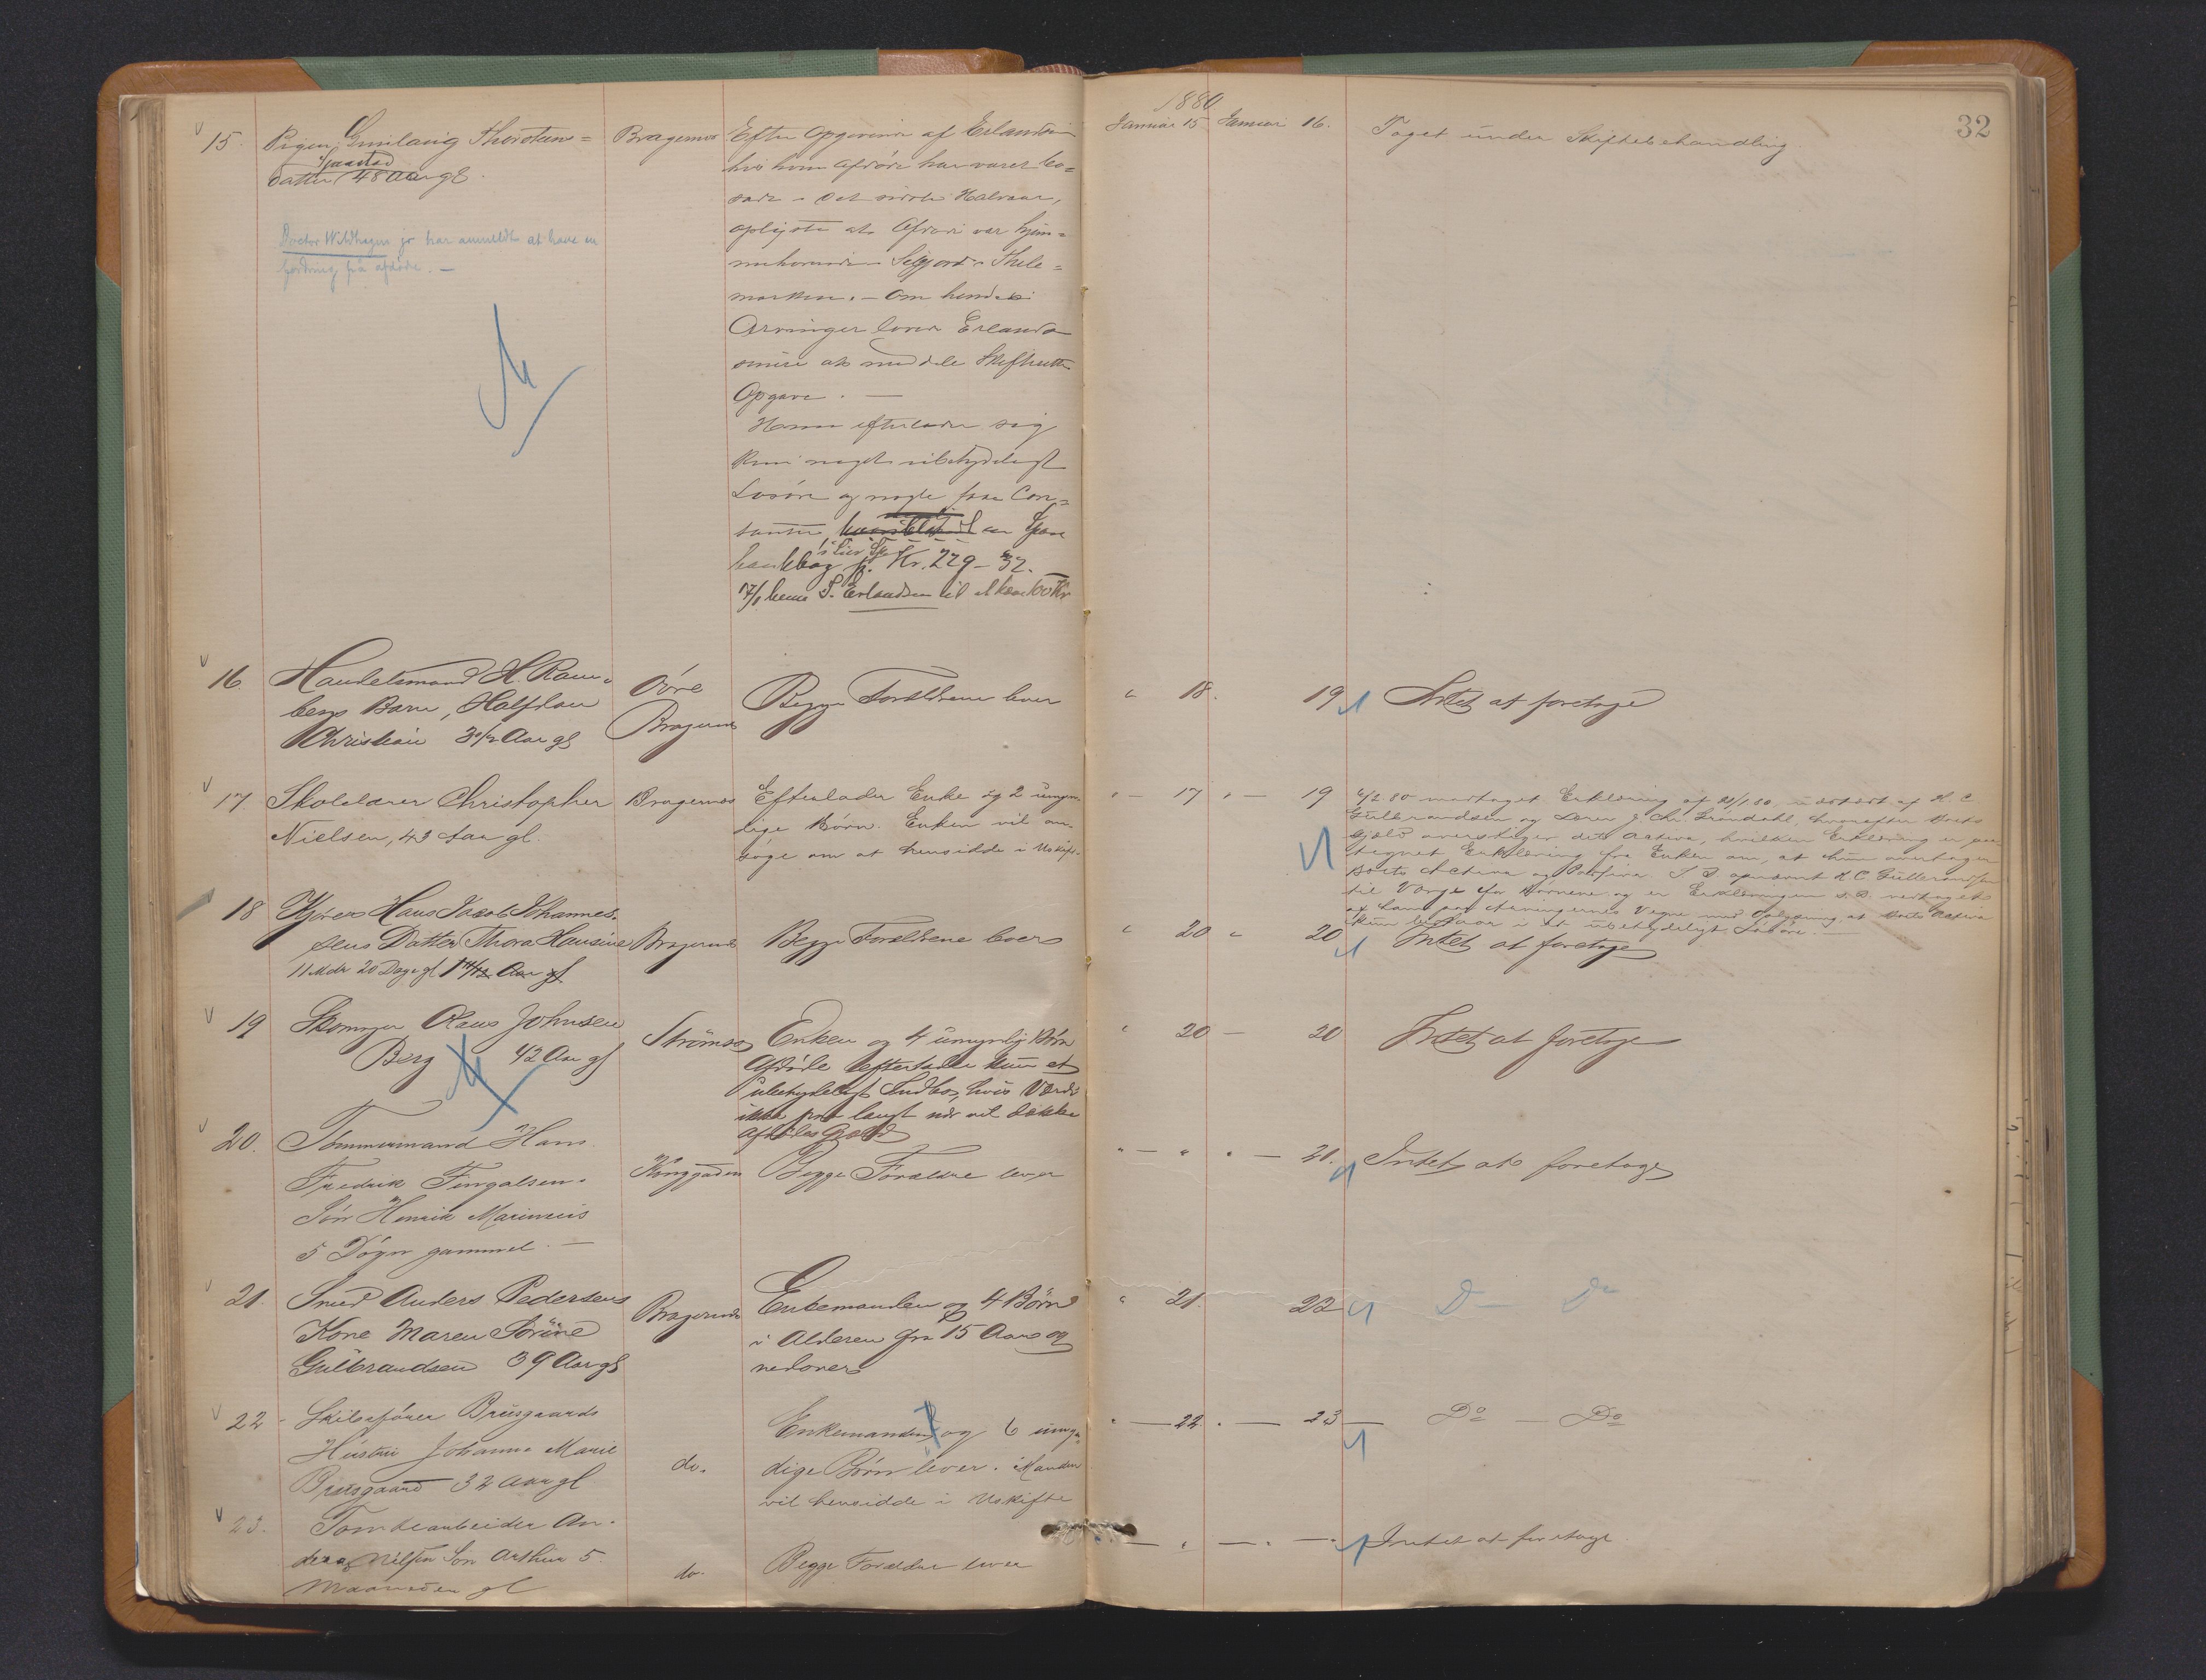 32
1880
15. Pigen Gunilaug Thorstens=
datter Spaastad 48 Aar gl.
Doctor Wildhagen jr har anmeldt at have en
fordring på afdøde. —
Bragernes
Efter Opgivende af Erlandsen
hos hvem Afdøde har været bo=
sat i det sidste Halvaar,
oplystes at Afdøde var hjem=
mehørende i Seljord i Thele=
marken. — Om hendes
Arvinger lover Erlands
senere at meddele Skifteretten
Opgave. —
Hun efterlader sig
kun noget ubetydeligt
Løsøre og nogle faa Con=
tanter en Spare
bankbog i Lier Sp. Kr. 229-32.
Januar 15 Januar 16.
Taget under Skiftebehandling.
16. Handelsmand H. Ram=
bergs Barn, Halfdan
Christian 3 1/2 Aar gl
Øvre
Bragernes
Begge Forældrene lever
" 18. 19
Intet at foretage
17. Skolelærer Christopher
Nielsen, 43 Aar gl.
Bragernes
Efterlader Enke og 2 umyn=
dige Børn. Enken vil an=
søge om at hensidde i Uskifte.
" — 17 " — 19
6/2 80 modtaget Erklæring af 21/1 80, udstedt af H. C.
Gulbrandsen og Lærer J. Chr. Grøndahl, hvorefter Boets
Gjæld overstiger dets Activa, hvilken Erklæring er paa=
tegnet Erklæring fra Enken om, at hun overtager
Boets Activa og Passiva. S. D. opnævnt H C Gulbrandsen
til Værge for Børnene og er Erklæringen s. D. vedtaget
af ham paa Arvingernes Vegne med Oplysning, at Boets Activa
kun bestaar i et ubetydeligt Løsøre. —
18 Kjører Hans Jacob Johannes=
sens Datter Thora Hansine
11 Mdr 20 Dage gl 1 11/12 Aar gl
Bragernes
Begge Forældrene lever
" 20 " 20
Intet at foretage
19 Skomager Olaus Johnsen
Berg 42 Aar gl
Strømsø
Enken og 4 umyndig Børn
Afdøde efterlader kun et
ubetydeligt Indbo, hvis Værdi
ikke paa langt nær vil dække
Afdødes Gjæld
" 20 — 20
Intet at foretage
20. Tømmermand Hans
Fredrik Fingalsens
Søn Henrik Marinius
5 Døgn gammel. —
Konggaden
Begge Forældre lever
" — " " — 21.
Intet at foretage
21. Smed Anders Pedersens
Kone Maren Sørine
Gulbrandsen 39 Aar gl
Bragernes
Enkemanden og 4 Børn
i Alderen fra 15 Aar og
nedover
" 21. 22
Do — Do
22 - Skibsfører Brusgaards
Hustru Johanne Marie
Brusgaard 32 Aar gl
do.
Enkemanden og 6 umyn=
dige Børn lever. Manden
vil hensidde i Uskifte
" — 22. " — 23 —
Do — Do
23. Tomtearbeider An=
ders Nilsen Søn Arthur 5
Maaneder gl
do.
Begge Forældre lever
" — " — " —
Intet at foretage.